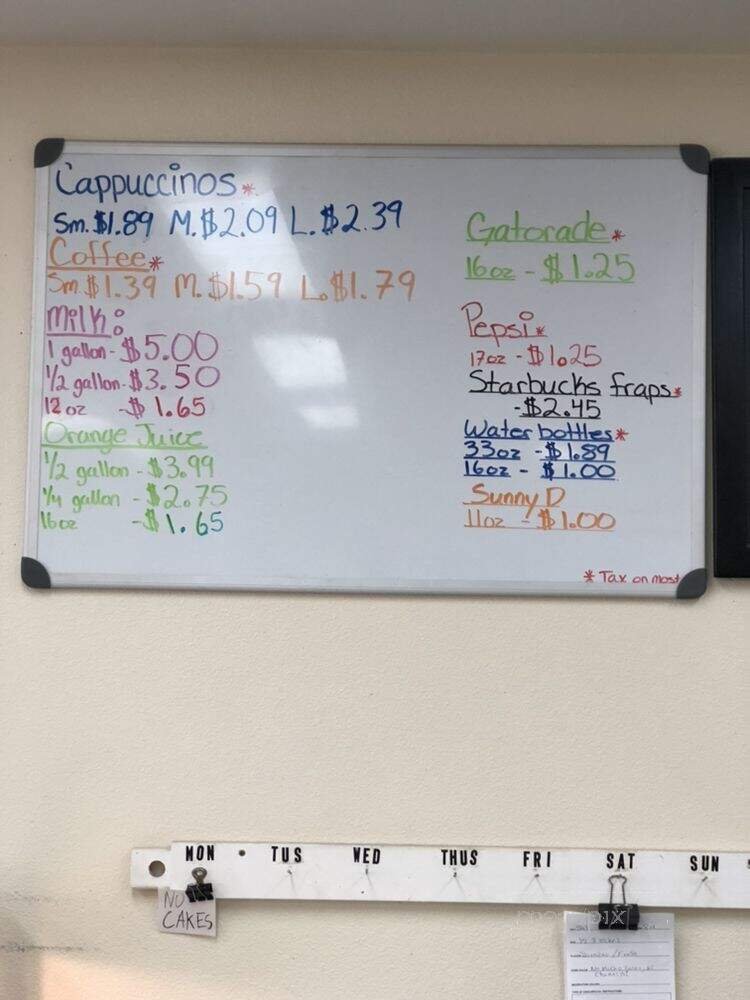 Cappuccinos*
Sm. $1.89 M. $2.09 L. $2.39
Coffee*
Sm $1.39 M. $1.59 L. $1.79
Milk:
1 gallon - $5.00
1/2 gallon - $3.50
12 oz - $1.65
Orange Juice
1/2 gallon - $3.99
1/4 gallon - $2.75
16oz - $1.65
Gatorade*
16oz - $1.25
Pepsi*
17oz - $1.25
Starbucks fraps*
- $2.45
Water bottles*
33oz - $1.89
16oz - $1.00
Sunny D
11oz - $1.00
* Tax on most
MON TUS WED THUS FRI SAT SUN
NO
CAKES